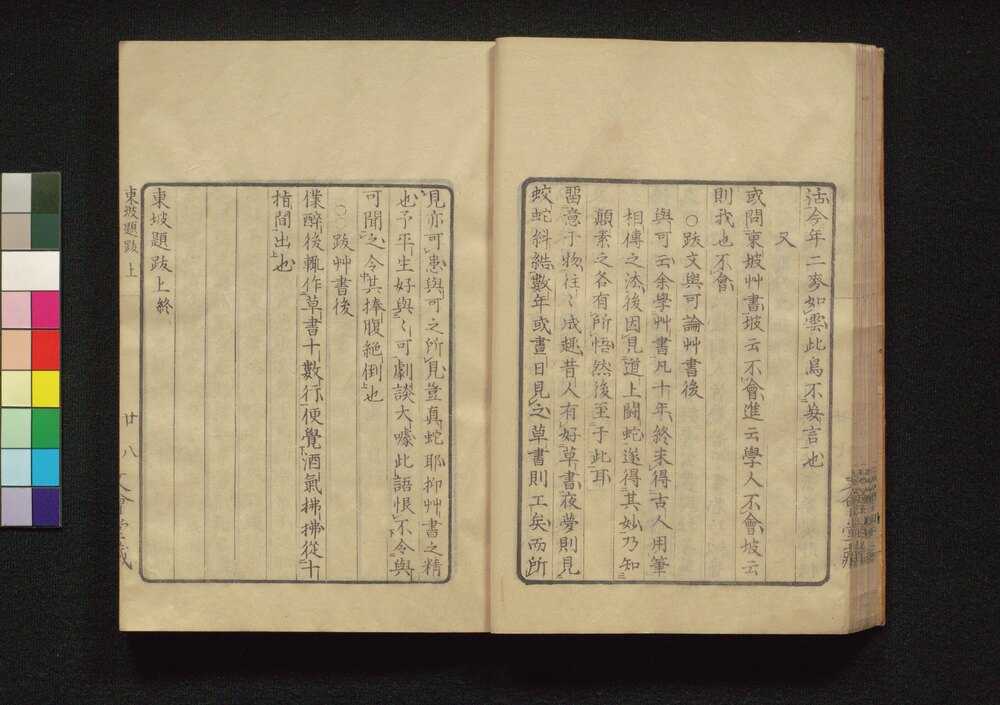 活今年二麥如雲此鳥不妄言也
又
或問東坡艸書坡云不會進云學人不會坡云
則我也不會
○跋文與可論艸書後
與可云余學艸書凡十年終未得古人用筆
相傳之法後因見道上鬪蛇遂得其妙乃知
顛素之各有所悟然後至于此耳
畱意于物往〻成趣昔人有好草書夜夢則見
蛟蛇糾結數年或晝日見之草書則工矣而所
見亦可患與可之所見豈真蛇耶抑艸書之精
也予平生好與〻可劇談大噱此語恨不令與
可聞之令其捧腹絕倒也
○跋艸書後
僕醉後輒作草書十數行便覺酒氣拂拂從十
指間出也
東坡題跋上終
東坡題跋 上
廿八